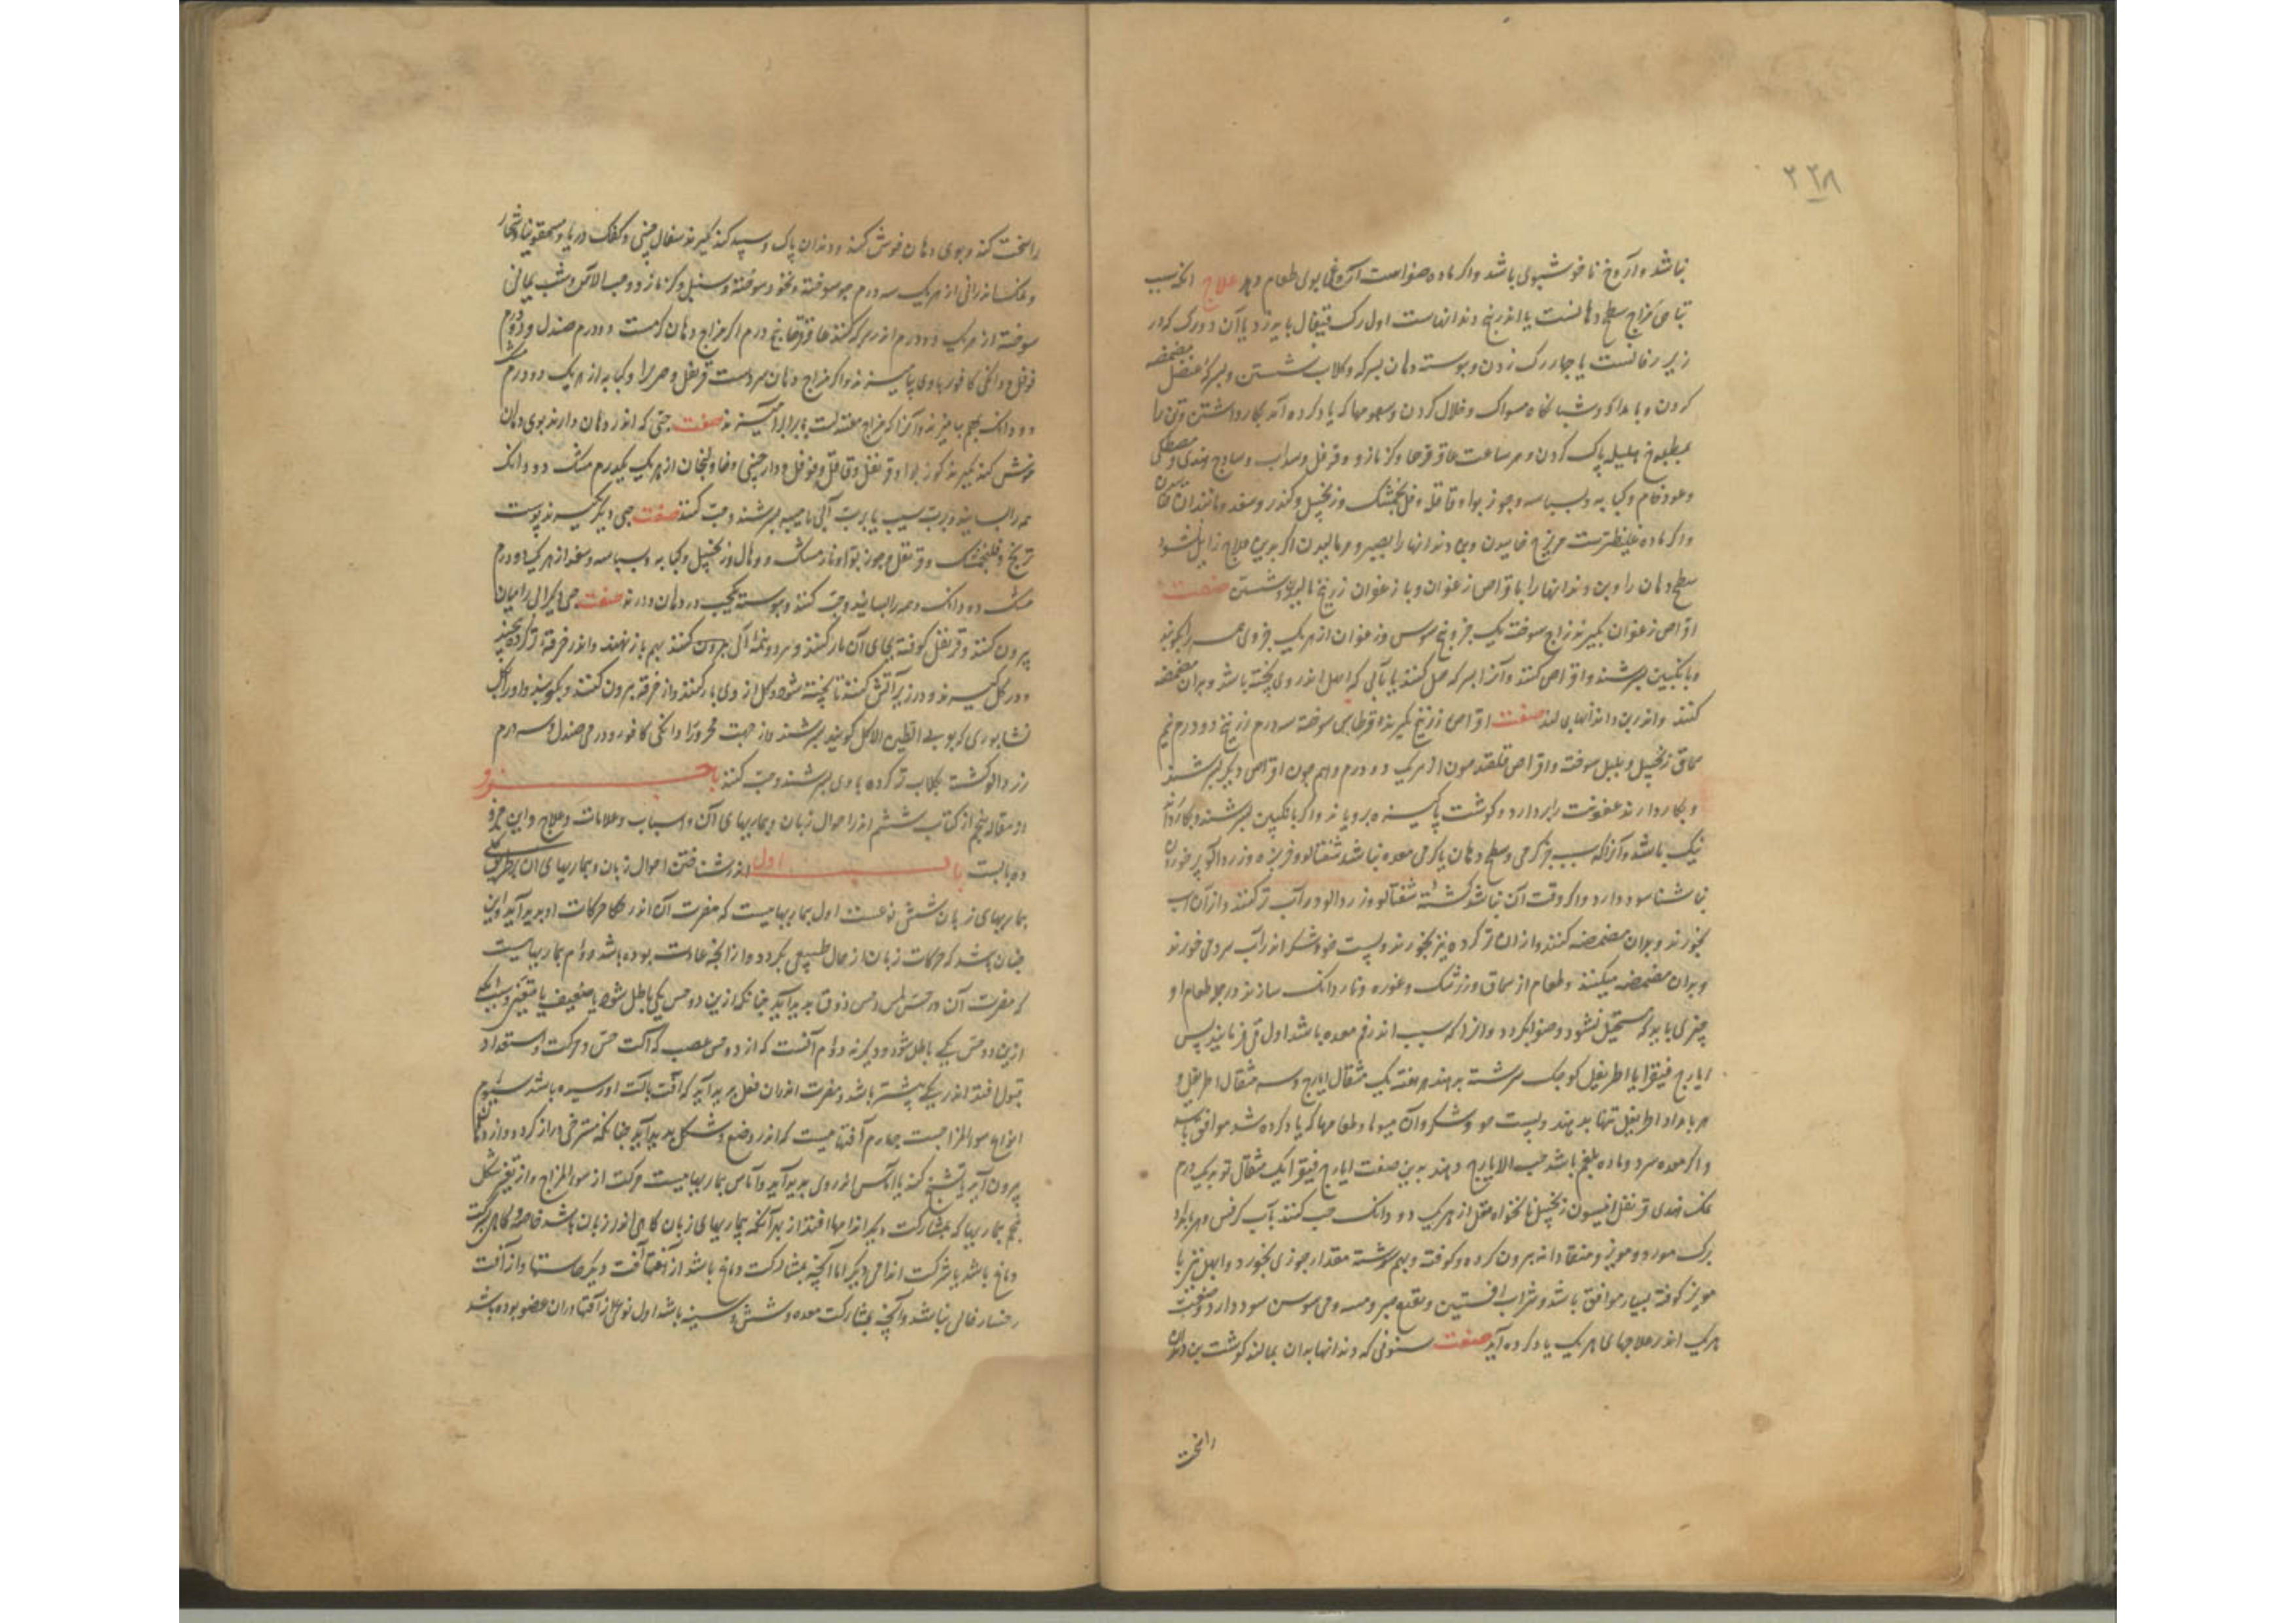 ۲۲۸
نباشد و آروغ ناخوشبوی باشد و اگر ماده صفراست آروغ بوی طعام دهد علاج آنچه سبب
تباهی مزاج سطح دهانست یا اندر بیخ دندانهاست اول رگ قیفال باید زد یا آن دو رگ که در
زیر زفانست یا چهار رگ زدن و پیوسته دهان بسرکه و کلاب شستن و بسرکه عنصل مضمضه
کردن و بامداد و شبانگاه مسواک و خلال کردن و سعوطها که یاد کرده آمد بکار داشتن و تن را
بمطبوخ هلیله پاک کردن و هر ساعت عاقرقرحا و کزمازو و قرنفل و سداب و سادج هندی و مصطکی
و عود خام و کبابه و بسباسه و جوز بوا و قاقله و فلنجمشک و زنجبیل و کندر و سعد و مانند آن خائیدن
و اگر ماده غلیظترست مویزج خاییدن و بن دندانها را بصبر و مر مالیدن اگر بدین علاج زایل نشود
سطح دهان را و بن دندانها را باقراص زعفران و با زعفران زرنیخ مالیدن و شستن صفت
اقراص زعفران بگیرند زاج سوخته یک جزو بیخ سوس و زعفران از هر یک جزوی همه را بکوبند
و بانگبین بسرشند و اقراص کنند و آنرا بسرکه حل کنند یا بآبی که ابهل اندر وی پخته باشد و بدان مضمضه
کنند و اندر بن دندانها می‌مالند صفت اقراص زرنیخ بگیرند قرطاس سوخته سه درم زرنیخ دو درم نیم
سماق زنجبیل و بلیل سوخته و اقراص قلقدیون از هر یک دو درم و هم چون اقراص دیگر بسرشند
و بکار دارند عفونت را بردارد و گوشت پاکیزه برویاند و اگر بانگبین بسرشند و بکار دارند
نیک باشد و آنرا که سبب جز گرمی سطح دهان یا گرمی معده نباشد شفتالو و خربزه و زردآلو پر خوردن
ناشتا سود دارد و اگر وقت آن نباشد کشته شفتالو و زردآلو در آب تر کنند و از آن آب
بخورند و بدان مضمضه کنند و از آن تر کرده نیز بخورند و پست جو و شکر اندر آب سرد می خورند
و بدان مضمضه میکنند و طعام از سماق و زرشک و غوره و ناردانک سازند در جمله طعام او
چیزی باید که مستحیل نشود و صفرا نگردد و آنرا که سبب اندر فم معده باشد اول قی فرمایند پس
ایارج فیقرا یا اطریفل کوچک سرشته بدهند هر هفته یک مثقال ایارج و سه مثقال اطریفل و
هر بامداد اطریفل تنها بدهند و پست جو و شکر و آن میوها و طعامها که یاد کرده شد موافق باشد
و اگر معده سرد و ماده بلغم باشد حب الایارج دهند بدین صفت ایارج فیقرا یک مثقال تربد یک درم
نمک هندی قرنفل انیسون زنجبیل نانخواه مقل از هر یک دو دانک حب کنند بآب کرفس و هر بامداد
برگ مورد و مویز و منقا دانه بیرون کرده و کوفته و بهم سرشته مقدار جوزی بخورد و ابهل نیز با
مویز کوفته بسیار موافق باشد و شراب افستین و نقیع صبر و میسوسن سود دارد و صفت
هر یک اندر علاجهای هر یک یاد کرده آید صفت سنونی که دندانها بدان بمالند گوشت بن دندان
را سخت
را سخت کند و بوی دهان خوش کند و دندان پاک و سپید کند بگیرند سفال چینی و کفک دریا و سحقونیا و شخار
و نمک اندرانی از هر یک سه درم جو سوخته و نخود سوخته و سنبل و کزمازو و حب الآس و شب یمانی
سوخته از هر یک دو درم اندر سرکه کنند عاقرقرحا پنج درم اگر مزاج دهان گرمست دو درم صندل و دو درم
فوفل و دانکی کافور با وی بیامیزند و اگر مزاج دهان سردست قرنفل و هر بوا و کبابه از هر یک دو درم مشک
دو دانک بهم بیامیزند و آنرا که مزاج معتدلست برابر آمیزند صفت حبی که اندر دهان دارند بوی دهان
خوش کند بگیرند جوز بوا و قرنفل و قاقله و فوفل و دارچینی و خاولنجان از هر یک یکدرم مشک دو دانک
همه را بسایند و برب سیب یا برب آبی یا میبه بسرشند و حب کنند صفت حبی دیگر بگیرند پوست
ترنج و فلنجمشک و قرنفل و جوز بوا و نارمشک و هال و زنجبیل و کبابه و بسباسه و سعد از هر یک دو درم
مشک دو دانک و همه را بسایند و حب کنند و پیوسته یک حب در دهان دارند صفت حبی دیگر آبی را میان
بیرون کنند و قرنفل کوفته بجای آن بار کنند و سر دو نیمه آبی بهم باز نهند و اندر خرقه تر کرده پیچند
و در گل گیرند و در زیر آتش کنند تا پخته شود و گل از وی باز کنند و از خرقه بیرون کنند و بکوبند و او را بگل
نشابوری که بوی الطین الاکل گویند بسرشند و از جهت محرور را دانکی کافور و درمی صندل و سه درم
زردآلو کشته بکلاب تر کرده با وی بسرشند و حب کنند جزو
از مقاله پنجم از کتاب ششم اندر احوال زبان و بیماریهای آن و اسباب و علامات و علاج و این جزو
ده بابست باب اول اندر شناختن احوال زبان و بیماریهای آن بطریق کلی
بیماریهای زبان شش نوعست اول بیماریهاییست که مضرت آن اندر حرکات او پدید آید و این
چنان باشد که حرکات زبان از حال طبیعی بگردد و از آنچه عادت بوده باشد دوم بیماریهاییست
که مضرت آن در حس لمس و حس ذوق پدید آید چنانکه ازین دو حس یکی باطل شود یا ضعیف یا متغیر و سبب آنکه
ازین دو حس یکی باطل شود و دیگر نه دوم آنست که از دو حس عصب که آلت حس و حرکت و استعداد
قبول افتد اندر یکی پیشتر باشد و مضرت اندر آن فعل پدید آید که آفت بآلت او رسیده باشد سیوم
انواع سوء المزاجست چهارم آفتهاییست که اندر وضع و شکل پدید آید چنانکه مسترخی و دراز گردد و از دهان
بیرون آید یا تشنج کند یا آماس اندر وی پدید آید و آماس بیماریهاییست مرکب از سوء المزاج و از تغیر شکل
پنجم بیماریها که بمشارکت دیگر اندامها افتد از بهر آنکه بیماریهای زبان گاهی اندر زبان باشد خاصه و گاهی بمشارکت
دماغ باشد یا شرکت اندامی دیگر اما آنچه بمشارکت دماغ باشد از آفت دیگر حاستها و از آفت
رخسار خالی نباشد و آنچه بمشارکت معده و شش و سینه باشد اول نوعی از آفتها در آن عضو بوده باشد